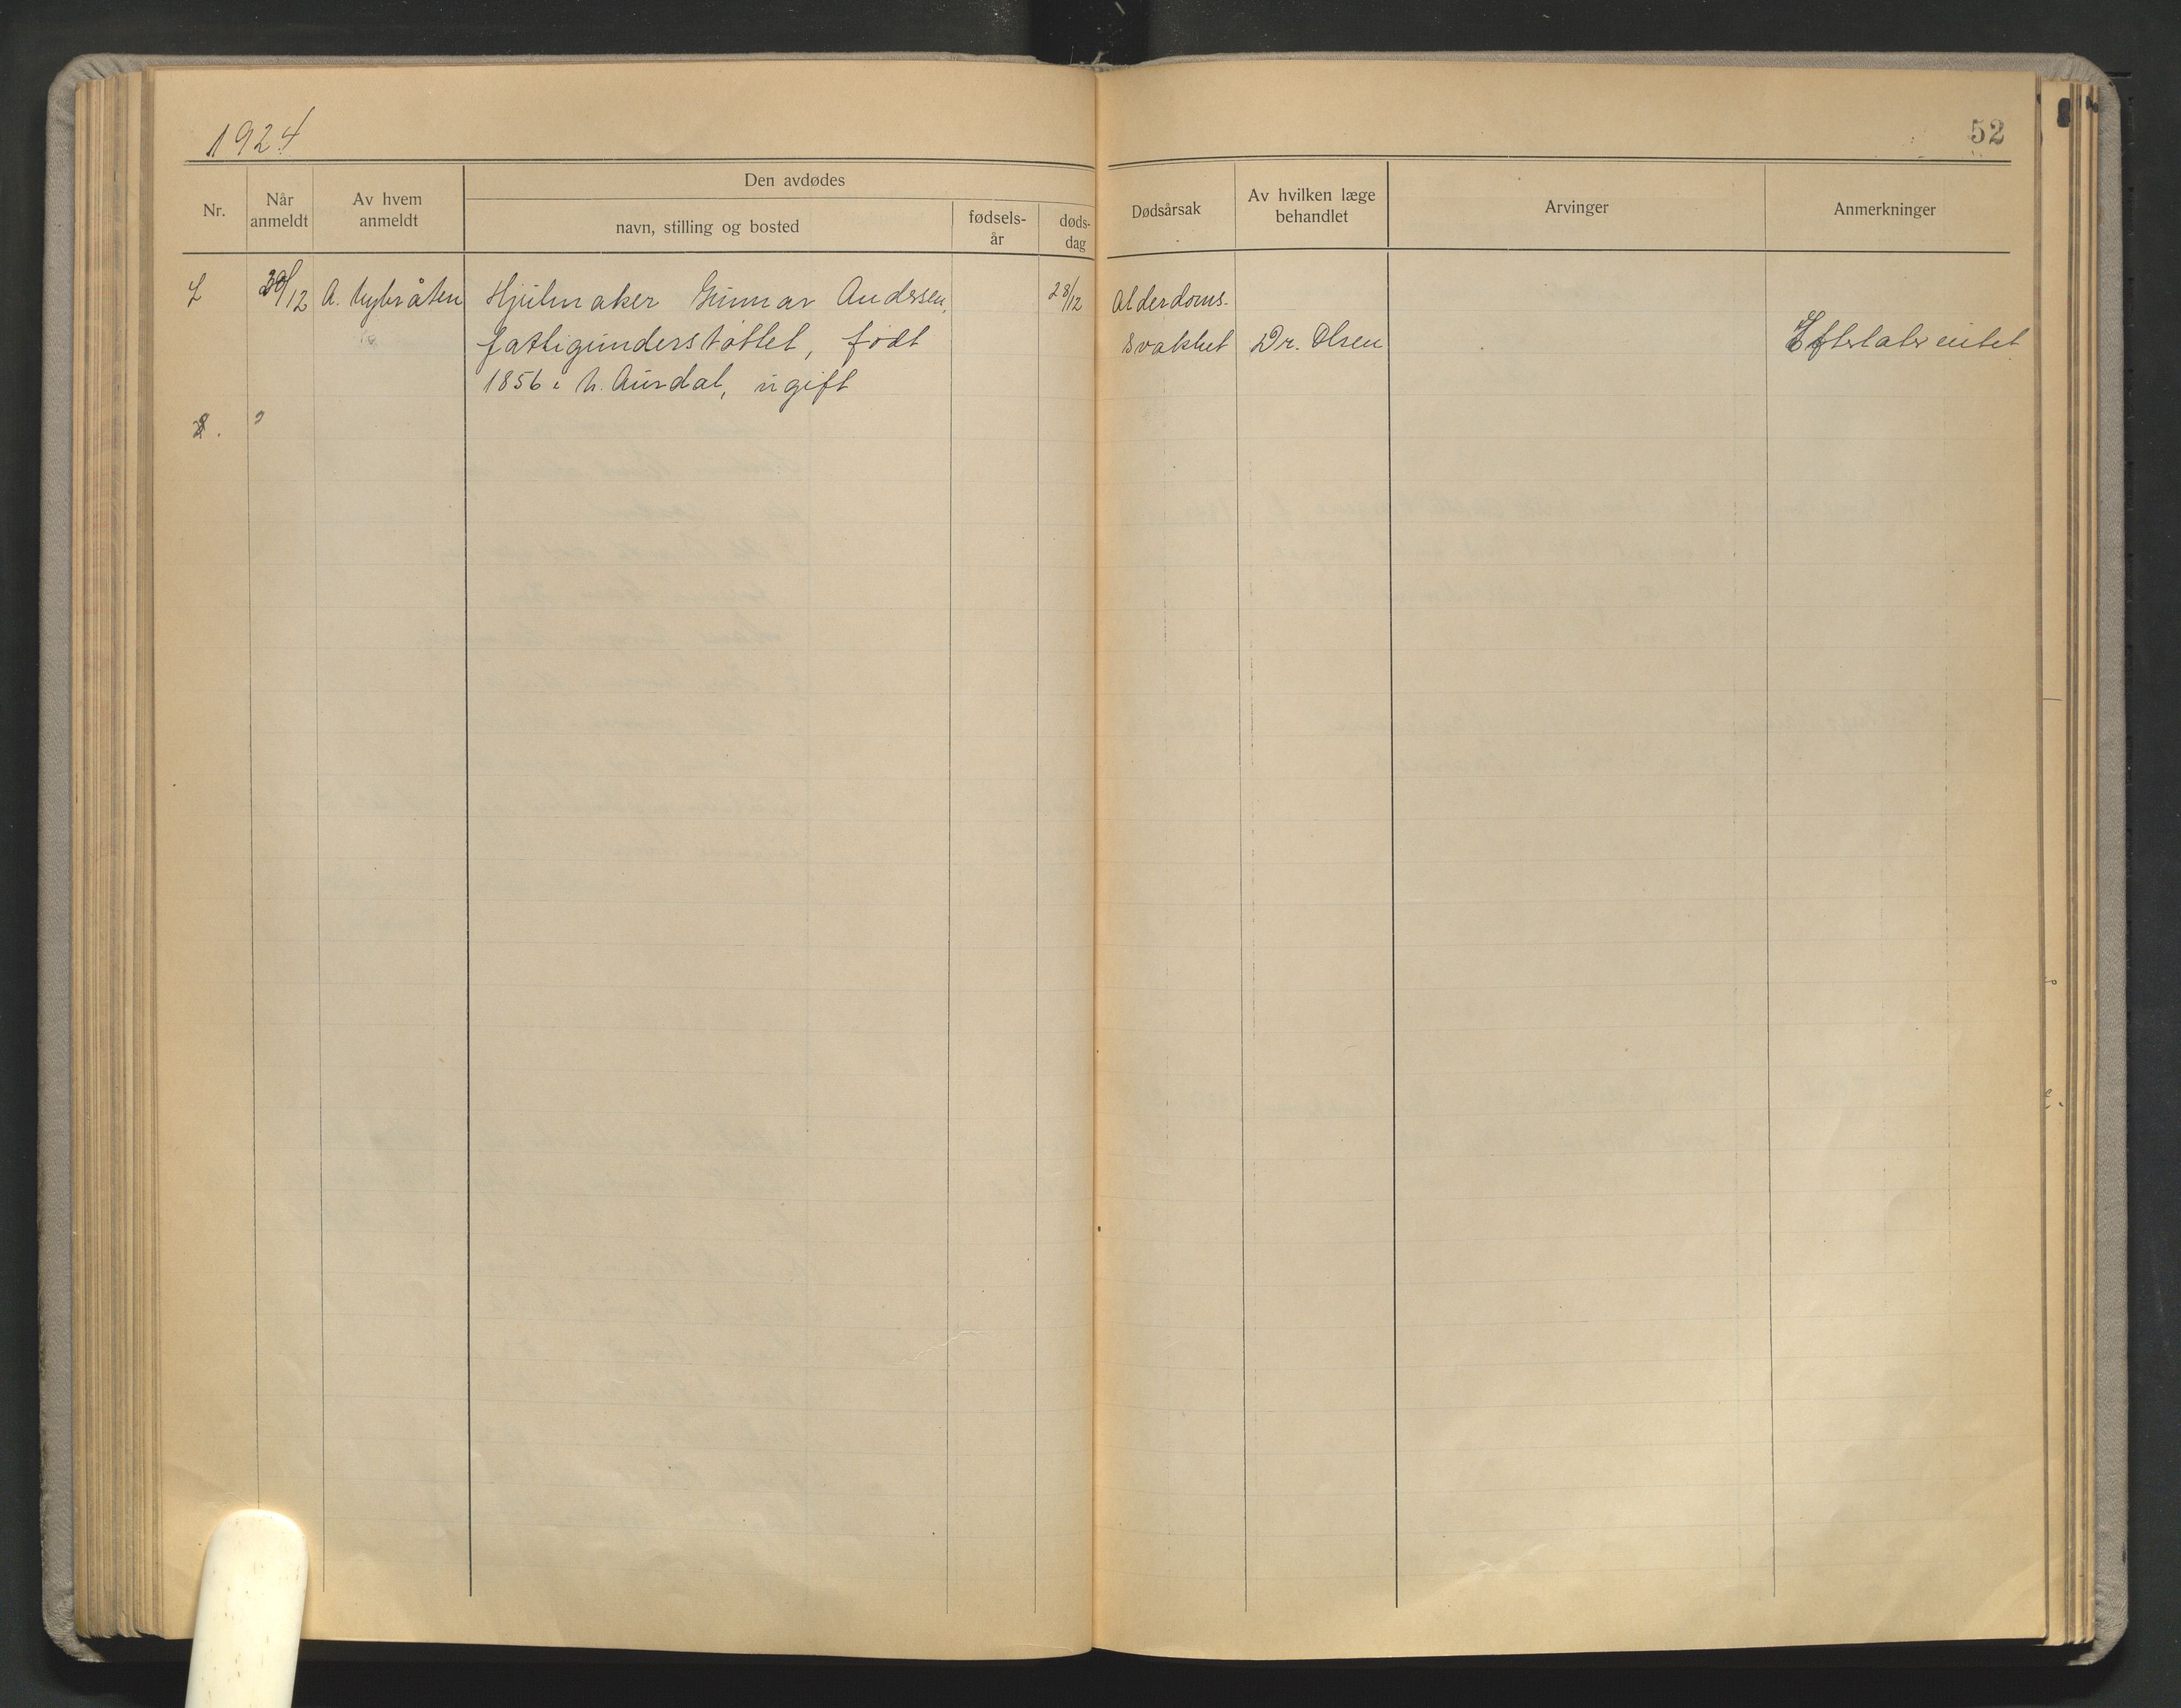 1924
52
Nr.
Når anmeldt
Av hvem anmeldt
Den avdødes
navn, stilling og bosted
fødsels-år
døds-dag
Dødsårsak
Av hvilken læge behandlet
Arvinger
Anmerkninger
30/12 A. Nybråten Hjulmaker Gunnar Anderssen, 28/12 Alderdoms-
fattigunderstøttet, født svakhet Dr. Olsen Efterlater intet
1856 i N. Aurdal, ugift